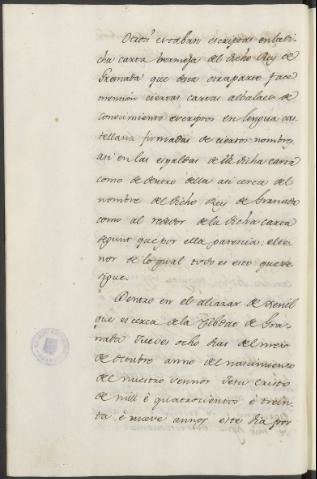 Otrosi estaban escriptas en la di-
cha carta bermeja del dicho Rey de
Granada que desa otra parte face
mencion ciertas cartas albalaes de
conocimiento escriptos en lengua cas-
tellana firmadas de ciertos nombres
asi en las espaldas de la dicha carta
como de dentro della asi cerca del
nombre del dicho Rey de Granada
como al rededor de la dicha carta
segunt que por ella parescia, el te-
nor de lo qual todo es esto que se
sigue.
Dentro en el alcazar de Xenil
que es cerca de la Cibdat de Gra-
nada Jueves ocho dias del mes
de Octubre anno del nascimiento
del nuestro Sennor Jesu Cristo
de mill è quatrocientos è trein-
ta è nueve annos este dia por